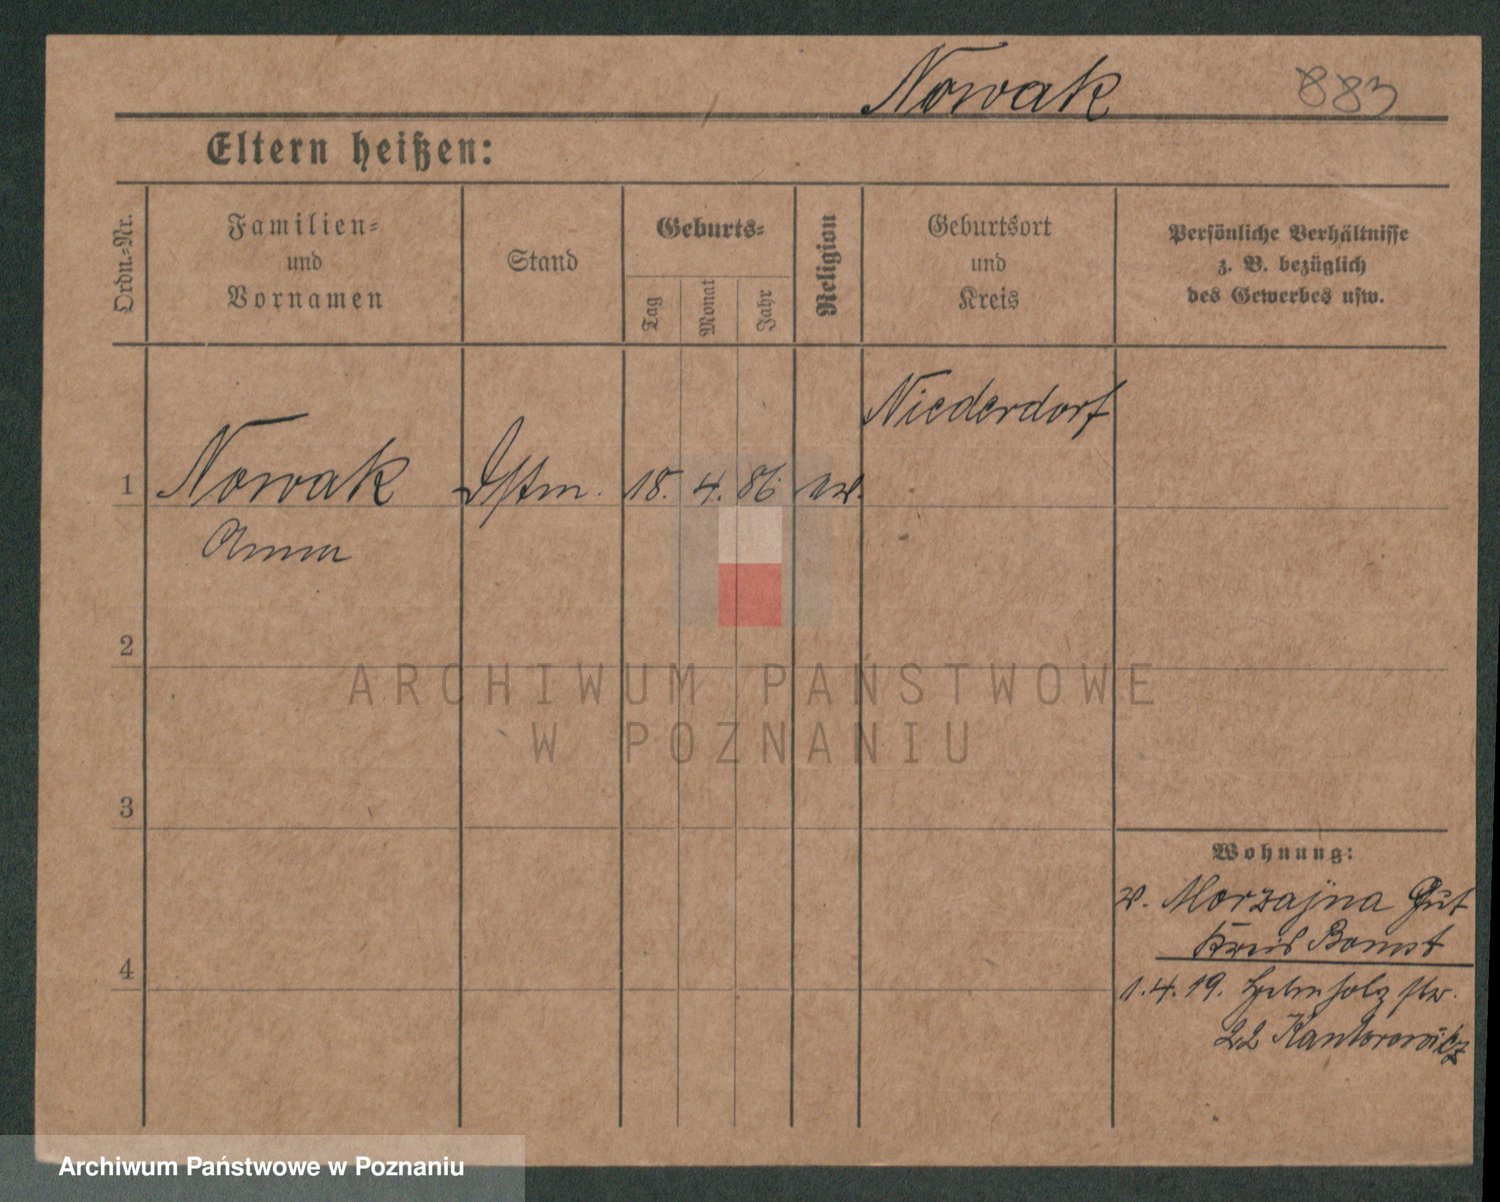 Nowak 883
Eltern heißen:
Ordn.-Nr.
Familien-
und
Vornamen
Stand
Geburts-
Tag
Monat
Jahr
Religion
Geburtsort
und
Kreis
Persönliche Verhältnisse
z. B. bezüglich
des Gewerbes usw.
Niederdorf
1 Nowak 18. 4. 86 ev.
Anna
2
3
4
Wohnung:
v. Gut
Kreis Bomst
1.4.19. str.
22 Kantorowicz
ARCHIWUM PAŃSTWOWE
W POZNANIU
Archiwum Państwowe w Poznaniu